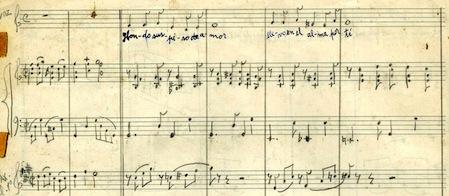 Hon-do sus-pi-ro de a-mor lle-vo en el al-ma por ti